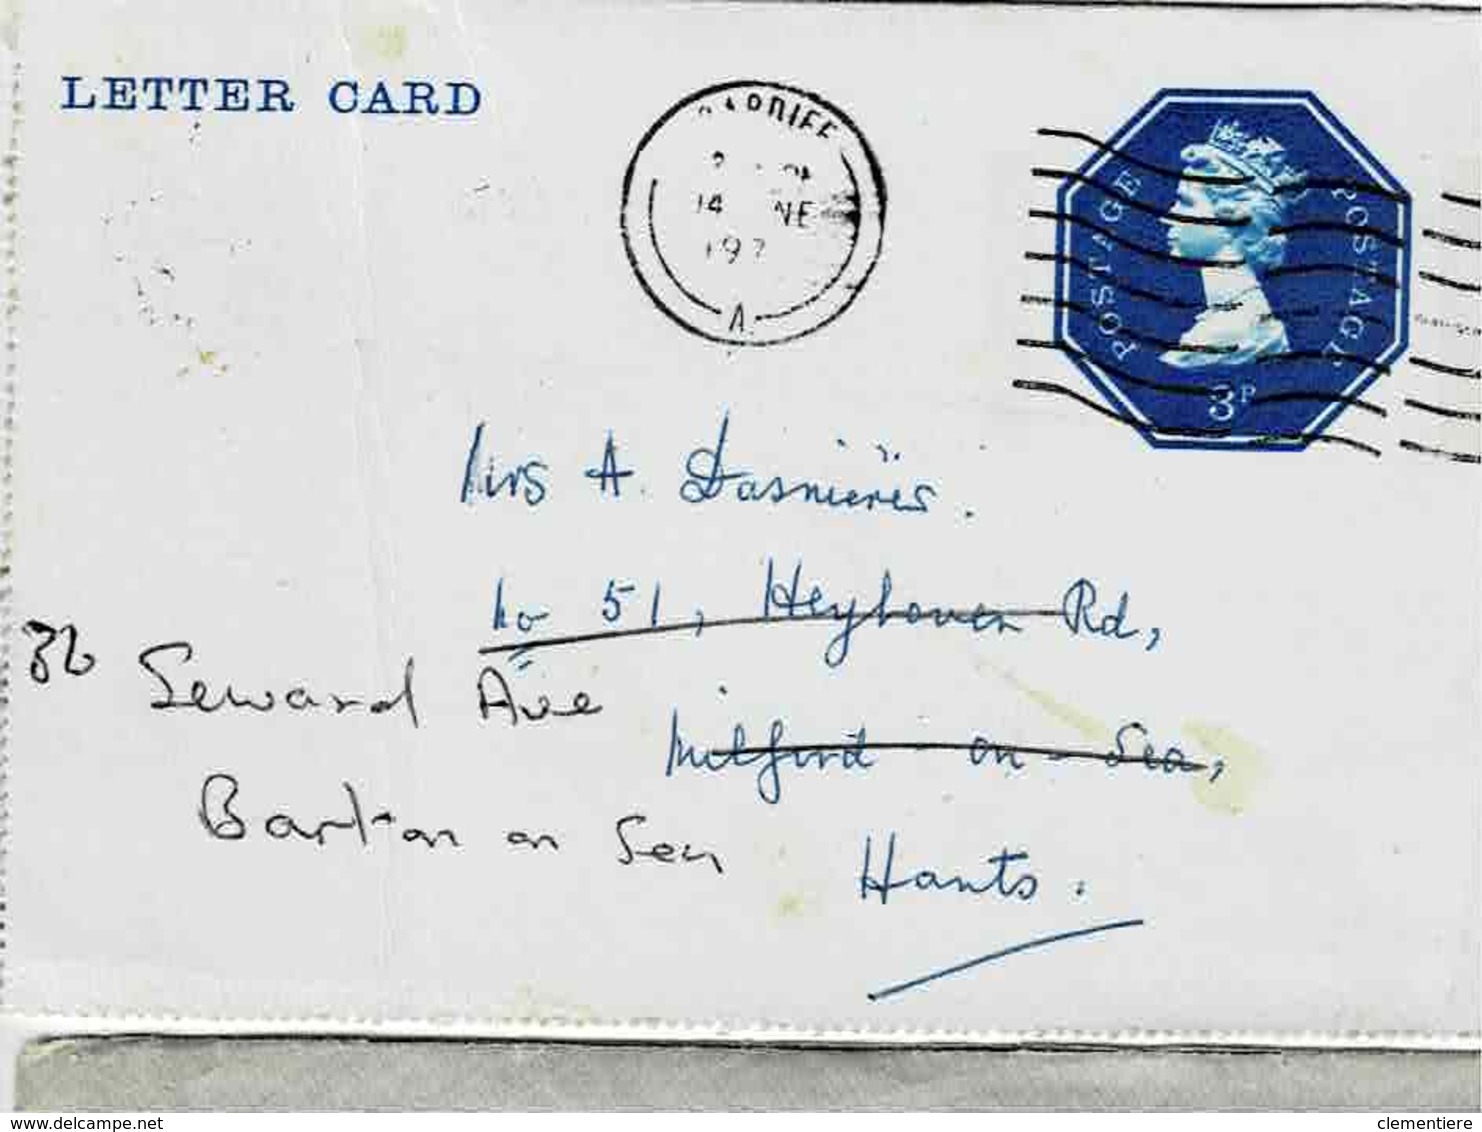 LETTER CARD
14 NE
197
A
POSTAGE
POSTAGE
3P
Mrs A. Dasnières.
No 51, Heyhoven Rd,
Milford on Sea,
Hants.
Seward Ave
Barton on Sea
www.delcampe.net
clementiere